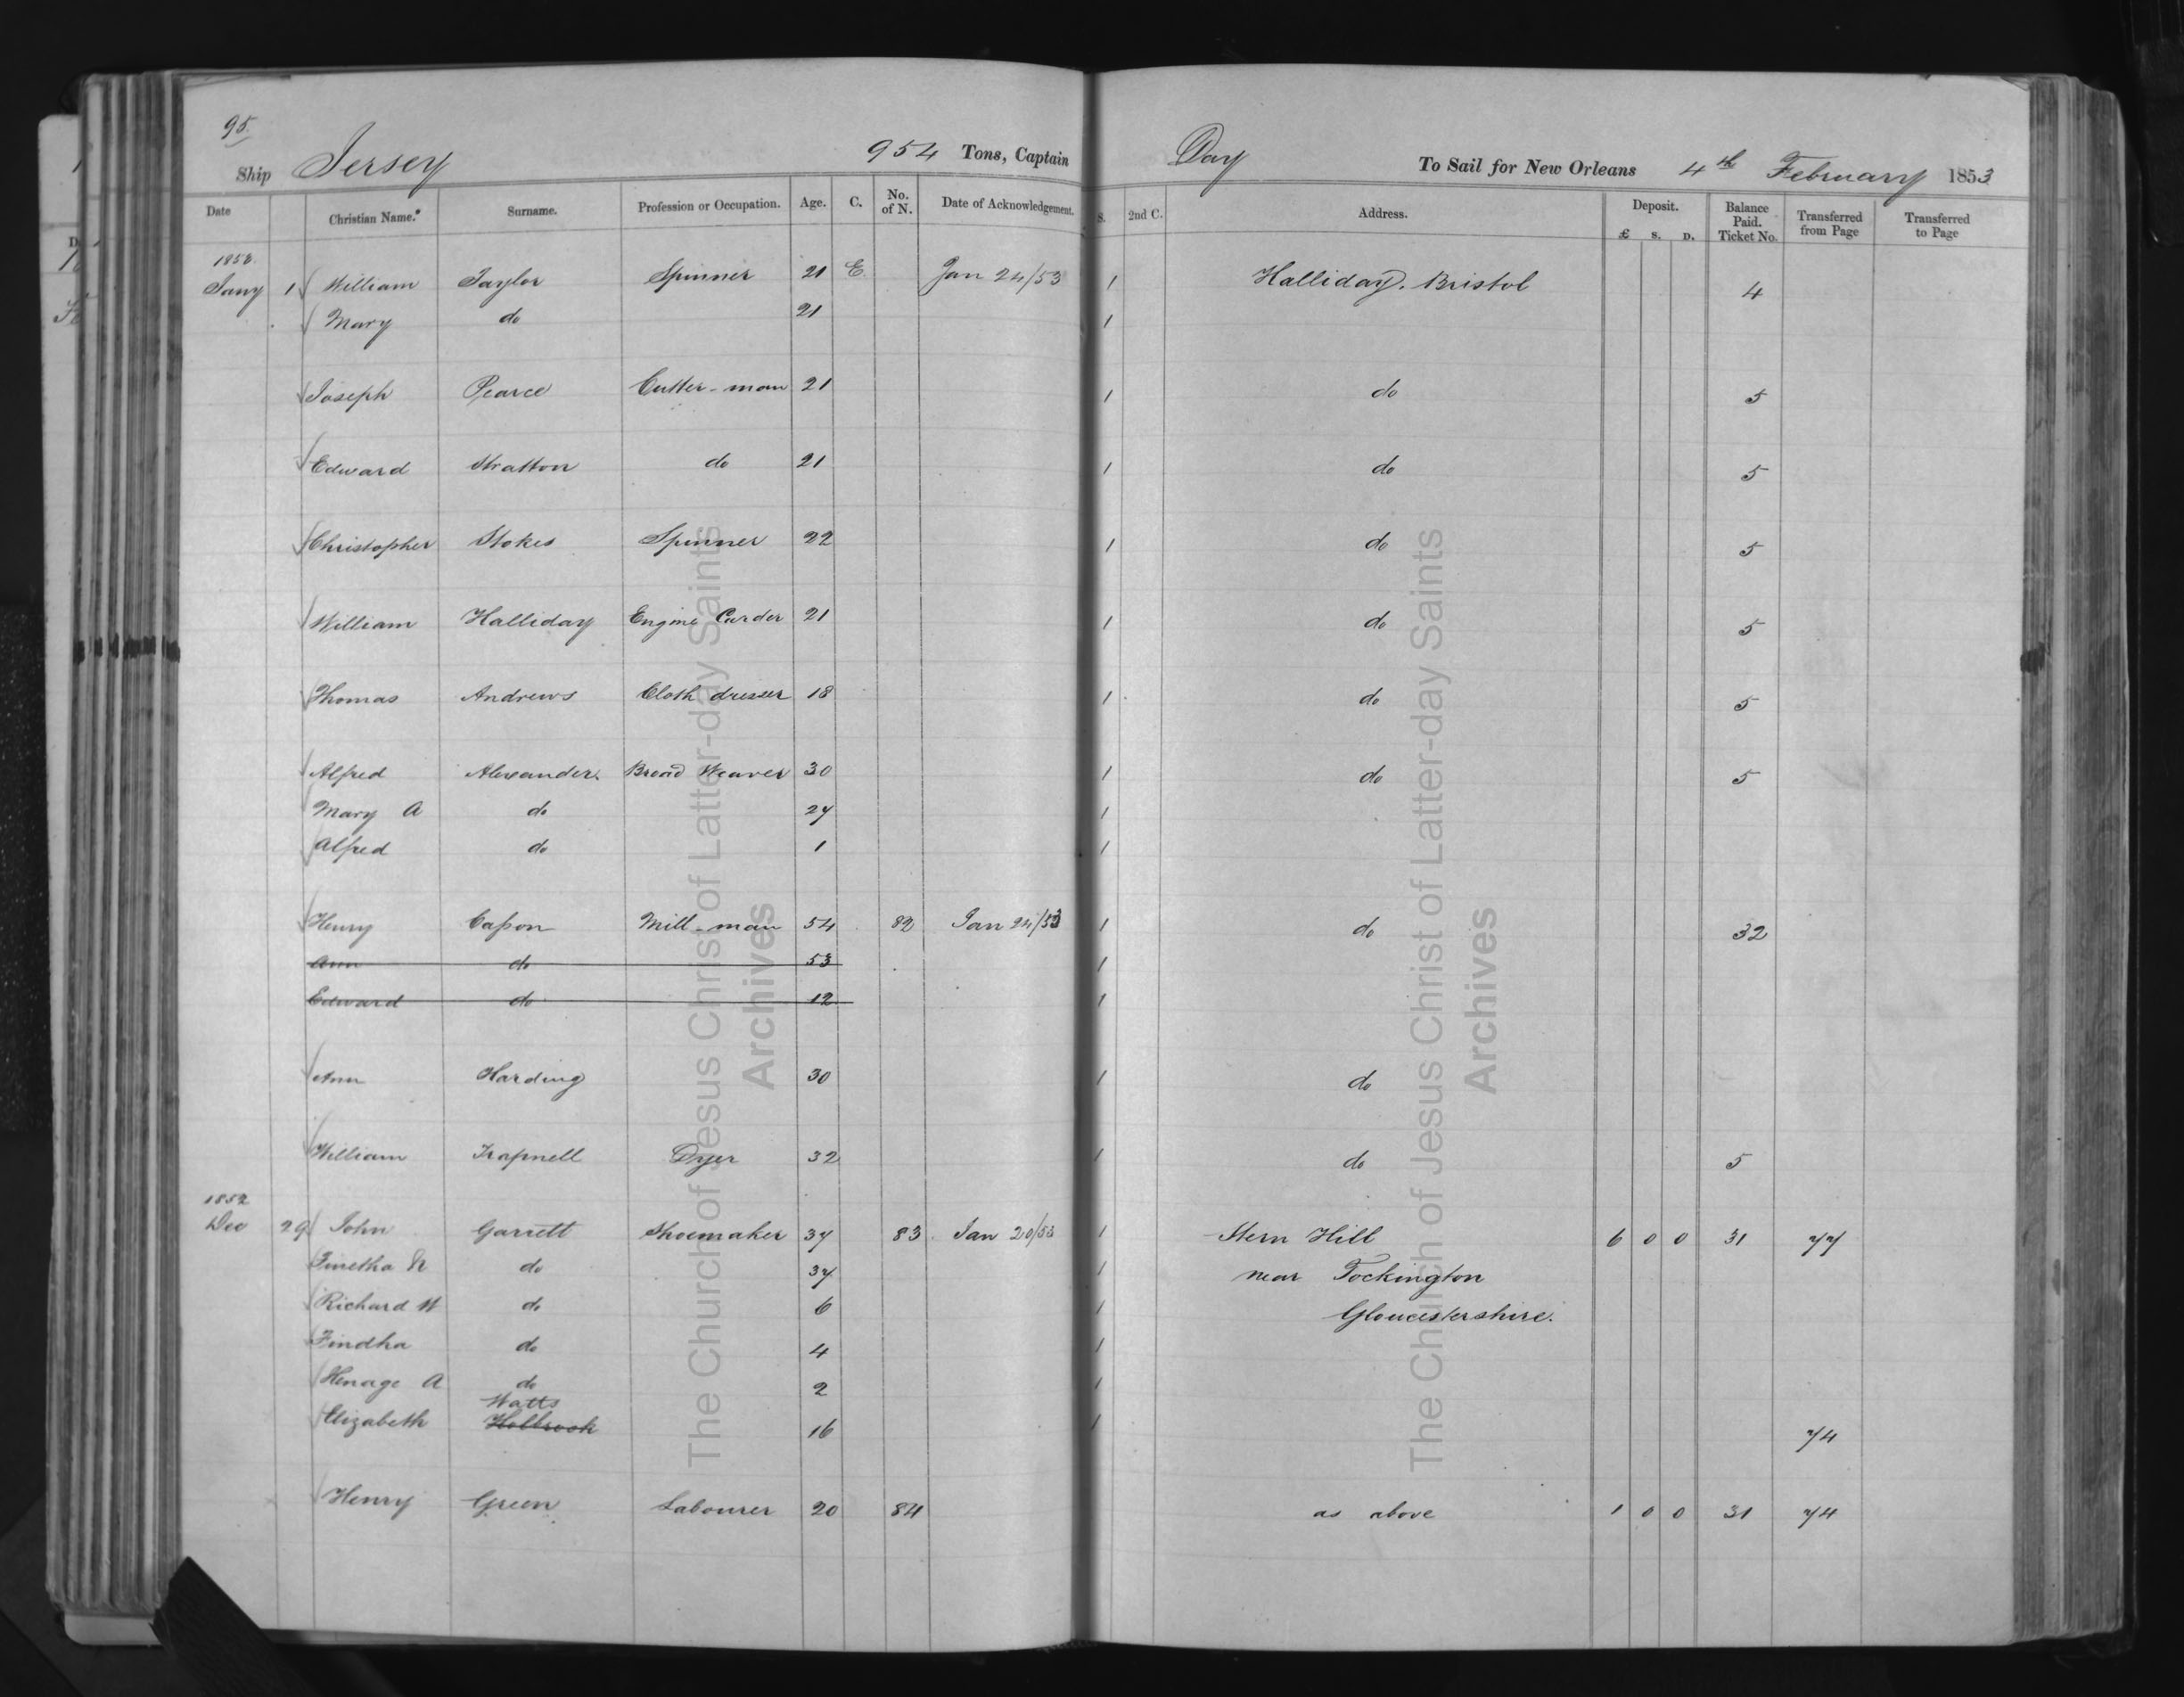 95
Ship Jersey 954 Tons, Captain Day To Sail for New Orleans 4th February 1853
Date Christian Name. Surname. Profession or Occupation. Age. C. No. of N. Date of Acknowledgement. S. 2nd C. Address. Deposit. £ s. D. Balance Paid. Ticket No. Transferred from Page Transferred to Page
1853
Jany 1 William Taylor Spinner 21 E Jan 24/53 1 Halliday. Bristol 4
Mary do 21 1
Joseph Pearce Cutter-man 21 1 do 5
Edward Stratton do 21 1 do 5
Christopher Stokes Spinner 22 1 do 5
William Halliday Engine Carder 21 1 do 5
Thomas Andrews Cloth dresser 18 1 do 5
Alfred Alexander Broad Weaver 30 1 do 5
Mary A do 27 1
Alfred do 1 1
Henry Capon Mill-man 54 82 Jan 24/53 1 do 32
Ann do 53 1
Edward do 12 1
Ann Harding 30 1 do
William Trapnell Dyer 32 1 do 5
1852
Dec 29 John Garrett Shoemaker 37 83 Jan 20/53 1 Stern Hill 6 0 0 31 77
do 37 1 near Tockington
Richard W do 6 1 Gloucestershire.
Findha do 4 1
Henage A do 2 1
Watts
Elizabeth Holbrook 16 1 74
Henry Green Labourer 20 84 as above 1 0 0 31 74
The Church of Jesus Christ of Latter-day Saints
Archives
The Church of Jesus Christ of Latter-day Saints
Archives